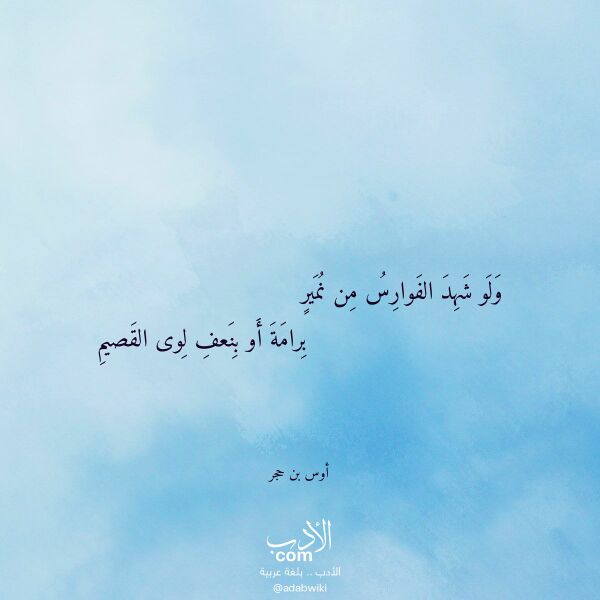 وَلَو شَهِدَ الفَوارِسُ مِن نُمَيرٍ
بِرامَةَ أَو بِنَعفِ لِوى القَصيمِ
أوس بن حجر
الأدب
com
الأدب .. بلغة عربية
@adabwiki